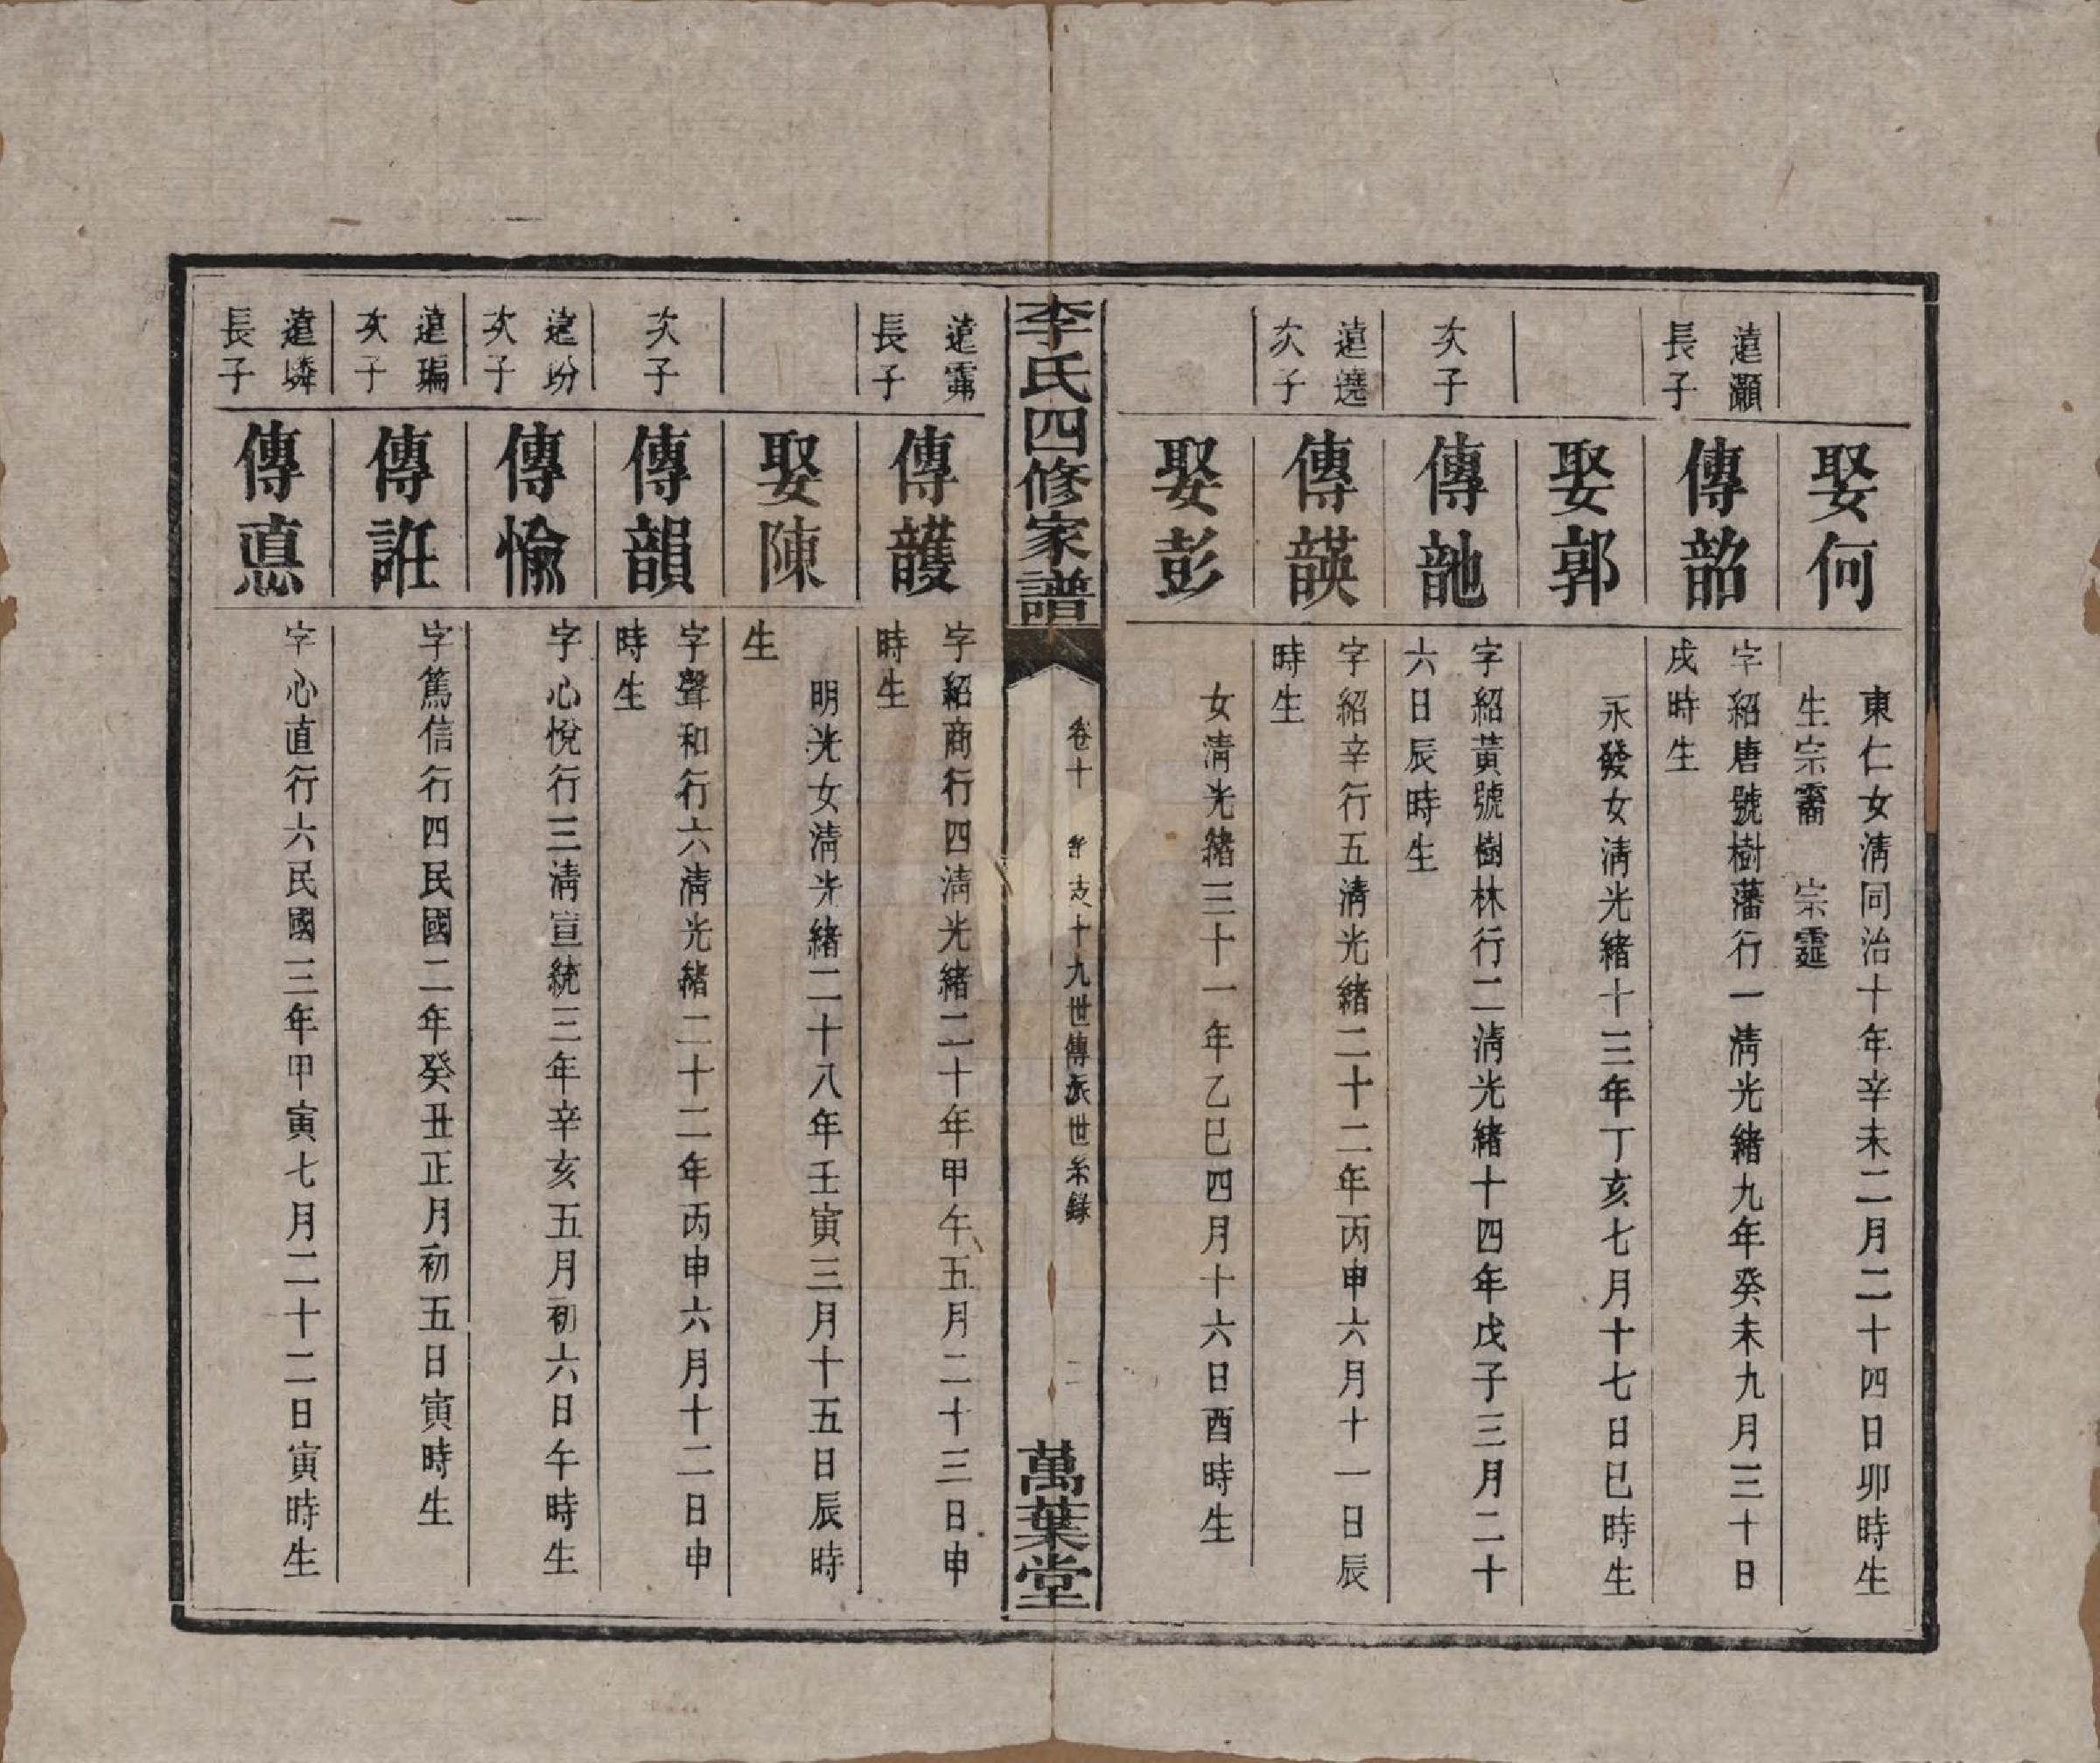 娶何
東仁女淸同治十年辛未二月二十四日卯時生
生宗霱　宗霆
遠灝
長子
傳韶
字紹唐號樹藩行一淸光緒九年癸未九月三十日
戌時生
娶郭
永發女淸光緒十三年丁亥七月十七日巳時生
次子
傳䪧
字紹黃號樹林行二淸光緒十四年戊子三月二十
六日辰時生
遠遶
次子
傳韺
字紹辛行五淸光緒二十二年丙申六月十一日辰
時生
娶彭
女淸光緒三十一年乙巳四月十六日酉時生
李氏四修家譜
卷十
支十九世傳派世系錄
二
萬葉堂
遠霈
長子
傳頀
字紹商行四淸光緒二十年甲午五月二十三日申
時生
娶陳
明光女淸光緒二十八年壬寅三月十五日辰時
生
次子
傳韻
字聲和行六淸光緒二十二年丙申六月十二日申
時生
遠玢
次子
傳愉
字心悅行三淸宣統三年辛亥五月初六日午時生
遠㻞
次子
傳託
字篤信行四民國二年癸丑正月初五日寅時生
遠璘
長子
傳悳
字心直行六民國三年甲寅七月二十二日寅時生